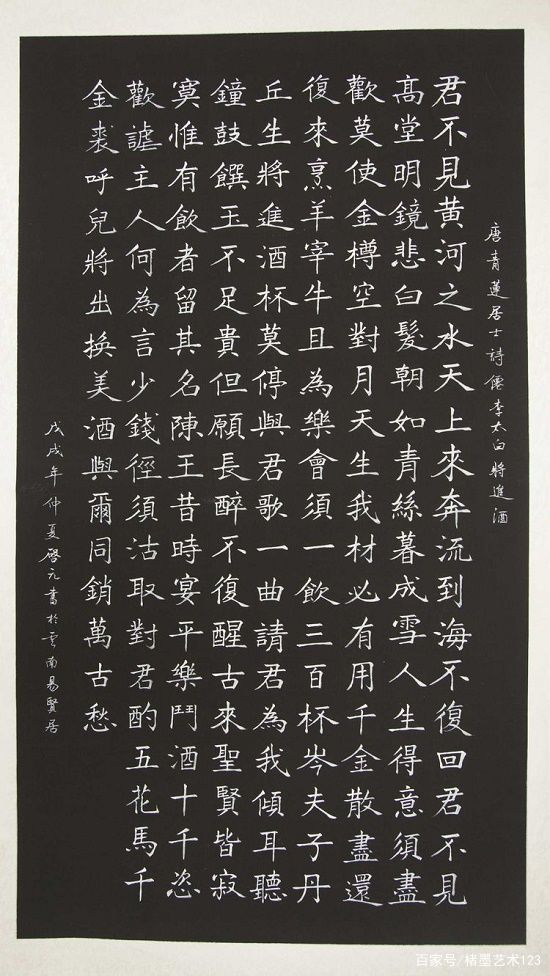 唐青蓮居士詩僊李太白將進酒
君不見黃河之水天上來奔流到海不復回君不見
高堂明鏡悲白髮朝如青絲暮成雪人生得意須盡
歡莫使金樽空對月天生我材必有用千金散盡還
復來烹羊宰牛且為樂會須一飲三百杯岑夫子丹
丘生將進酒杯莫停與君歌一曲請君為我傾耳聽
鐘鼓饌玉不足貴但願長醉不復醒古來聖賢皆寂
寞惟有飲者留其名陳王昔時宴平樂鬥酒十千恣
歡謔主人何為言少錢徑須沽取對君酌五花馬千
金裘呼兒將出換美酒與爾同銷萬古愁
戊戌年仲夏啓元書於雲南易賢居
百家号/楮墨艺术123